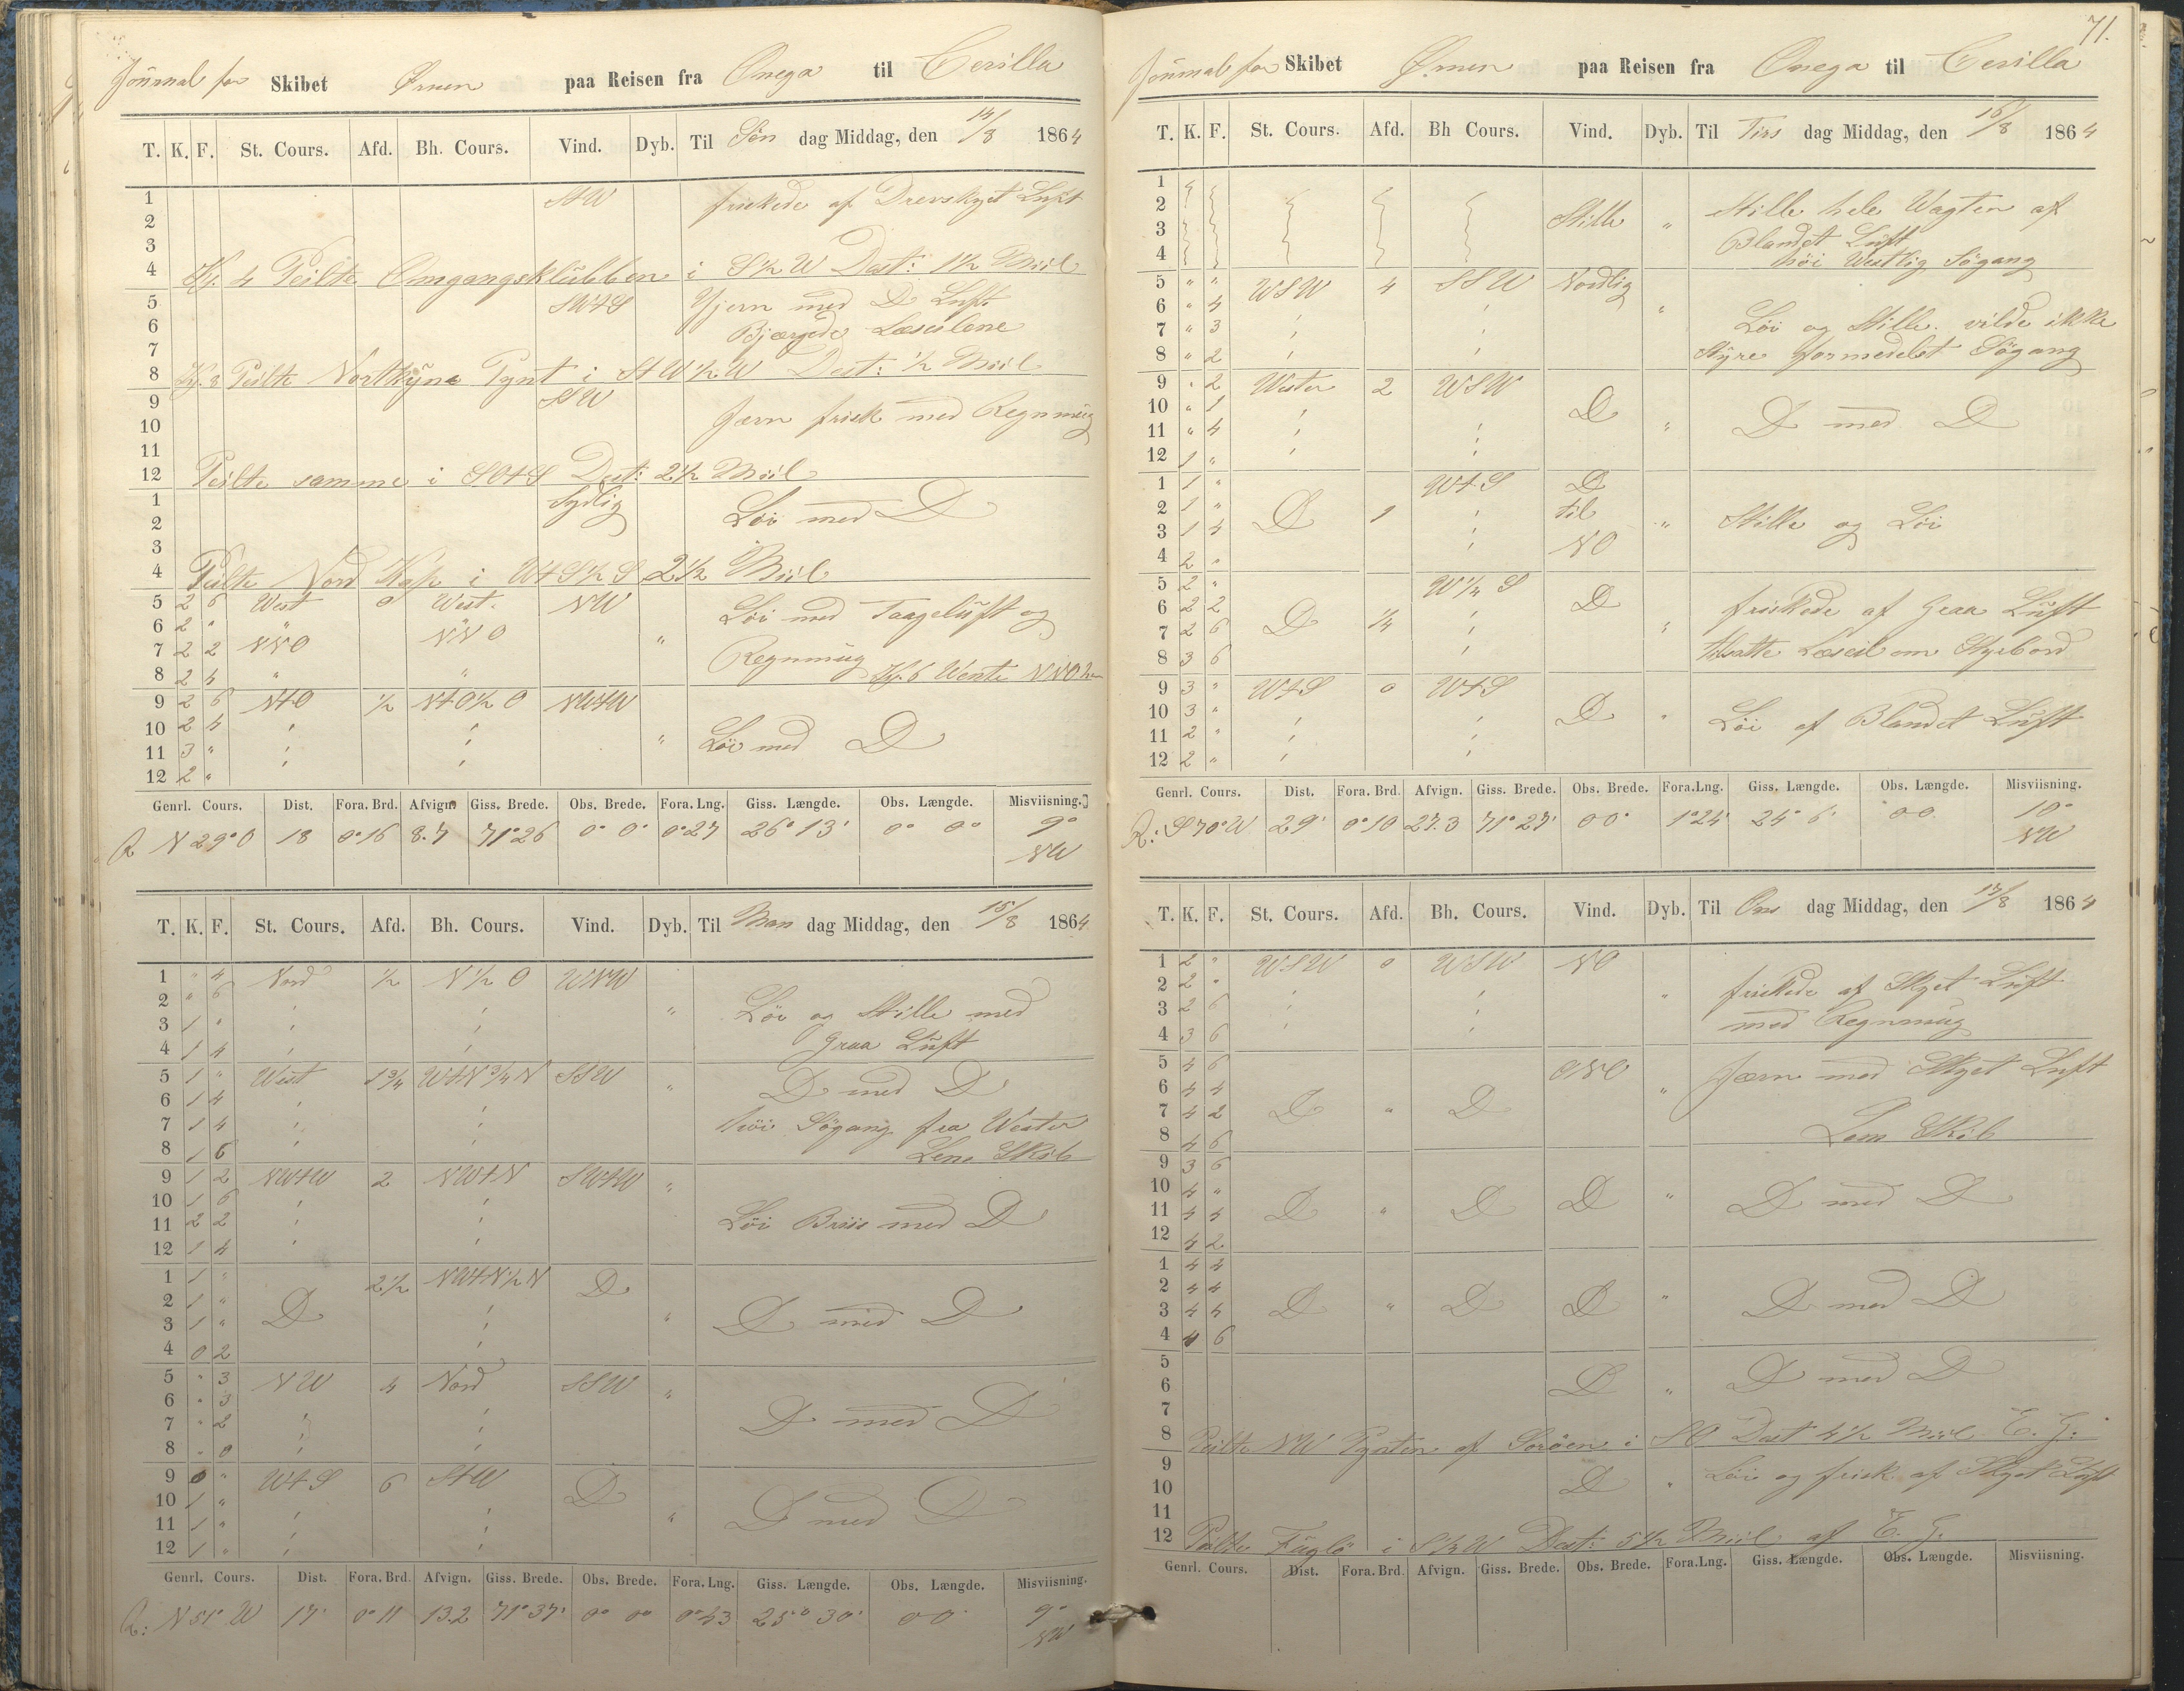 Journal for Skibet Ørnen paa Reisen fra Onega til Cerilla
T. K. F. St. Cours. Afd. Bh. Cours. Vind. Dyb. Til Søn dag Middag, den 14/8 1864
1 StW friskede af Drevskyet Luft
2
3
4 Kl. 4 Peilte Omgangsklubben i S½W Dist: 1½ Miil
5 SWtS Jern med D Luft
6 Bjærgede Læseilene
7
8 Kl. 8 Peilte Nortkÿne Pynt i StW½W Dist: ½ Miil
9 SSW
10 Jærn frisk med Regnmüg
11
12 Peilte samme i SOtS Dist: 2½ Miil
1 Sydlig Löi med D
2
3
4 Peilte Nord Kap i WtS½S 2½ Miil
5 2 6 West 0 West. NW Löi med Taagelüft og
6 2 " " "
7 2 2 NNO NNO " Regnmüg Kl. 6 Wente NNO
8 2 4 " "
9 2 6 NtO ½ NtO½O NWtW
10 2 4
11 3 " " Löi med D
12 2 "
Genrl. Cours. Dist. Fora. Brd. Afvign. Giss. Brede. Obs. Brede. Fora. Lng. Giss. Længde. Obs. Længde. Misviisning.
R N 29° O 18 0°16 8.7 71°26 0° 0' 0°27 26° 13' 0° 0° 9°
NW
T. K. F. St. Cours. Afd. Bh. Cours. Vind. Dyb. Til Man dag Middag, den 15/8 1864
1 " 4 Nord ½ N½O WNW
2 " 6 " Löi og Stille med
3 1 "
4 1 4 Graa Lüft
5 1 " West 1¾ WtN¾N SSW " D med D
6 1 4
7 1 4 Höi Sögang fra Wester
8 1 6 Lens Skib
9 1 2 NWtW 2 NWtN SWtW "
10 1 6
11 2 2 Löi Briis med D
12 1 4
1 1 " 2½ NWtN½N D
2 1 " D " D med D
3 1 "
4 0 2
5 " 3 NW 4 Nord SSW "
6 " 3
7 " 2 D med D
8 " 0
9 0 " WtS 6 StW D
10 1 " D med D
11 1 " "
12 1 "
Genrl. Cours. Dist. Fora. Brd. Afvign. Giss. Brede. Obs. Brede. Fora. Lng. Giss. Længde. Obs. Længde. Misviisning.
R: N 51° W 17' 0° 11 13.2 71° 37' 0° 0° 0° 43 25° 30' 0 0 9°
NW
71.
Journal for Skibet Ørnen paa Reisen fra Onega til Cerilla
T. K. F. St. Cours. Afd. Bh Cours. Vind. Dyb. Til Tirs dag Middag, den 16/8 1864
1
2 Stille " Stille hele Wagten af
3 Blandet Luft
4 höi Westlig Sögang
5 " " WSW 4 SSW Nordlig
6 " 4 "
7 " 3 Löi og Stille. vilde ikke
8 " 2 Stÿre formedelst Sögang
9 " 2 Wester 2 WSW
10 " 1 D
11 " 4 " D med D
12 1 "
1 1 " WtS D
2 1 " D 1 til " Stille og Löi
3 1 4
4 2 " NO
5 2 " W¼S
6 2 2 D friskede af Graa Lüft
7 2 6 D ¼ "
8 3 6 tilsatte Læseil om Styrbord
9 3 " WtS 0 WtS
10 3 " D " Löi af Blandet Lüft
11 2 "
12 2 "
Genrl. Cours. Dist. Fora. Brd. Afvign. Giss. Brede. Obs. Brede. Fora.Lng. Giss. Længde. Obs. Længde. Misviisning.
R: S 70° W 29' 0° 10 27.3 71° 27' 0 0° 1°24' 24° 6' 0 0 10°
NW
T. K. F. St. Cours. Afd. Bh. Cours. Vind. Dyb. Til Ons dag Middag, den 17/8 1864
1 2 " WSW 0 WSW NO
2 2 " " friskede af Skyet Lüft
3 2 6 med Regnmüg
4 3 6
5 4 6 ONO Jærn med Skyet Luft
6 4 4 "
7 4 2 D " D
8 4 6 Lens Skib
9 3 6
10 4 " "
11 4 4 D " D D D med D
12 4 2
1 4 4
2 4 4 "
3 4 4 D " D D D med D
4 4 6
5
6 D " D med D
7
8 Peilte NW Pynten af Soröen i SO Dist 4½ Miil E. G.
9
10 D " Löi og frisk af Skyet Luft
11
12 Peilte Fuglö i S½W Dist: 5½ Miil af E. G.
Genrl. Cours. Dist. Fora. Brd. Afvign. Giss. Brede. Obs. Brede. Fora.Lng. Giss. Længde. Obs. Længde. Misviisning.